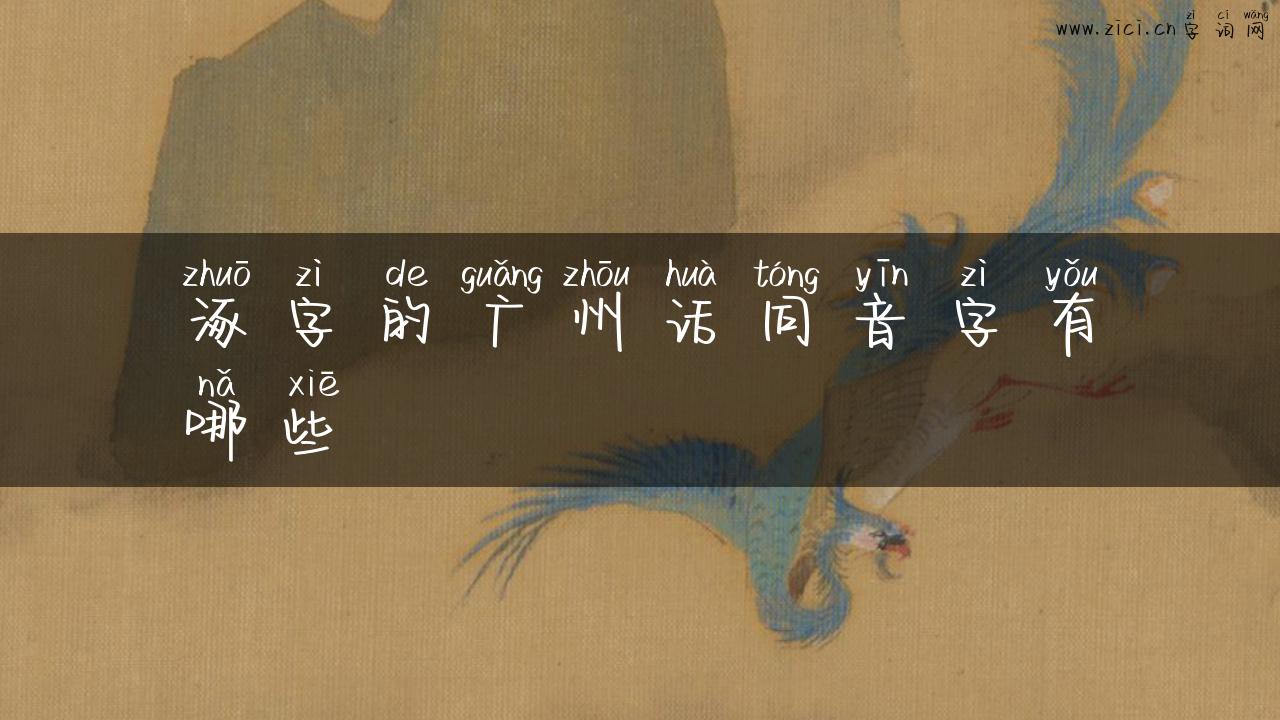 zì cí wǎng
www.zici.cn 字 词 网
zhuō zì de guǎng zhōu huà tóng yīn zì yǒu
涿 字 的 广 州 话 同 音 字 有
nǎ xiē
哪 些